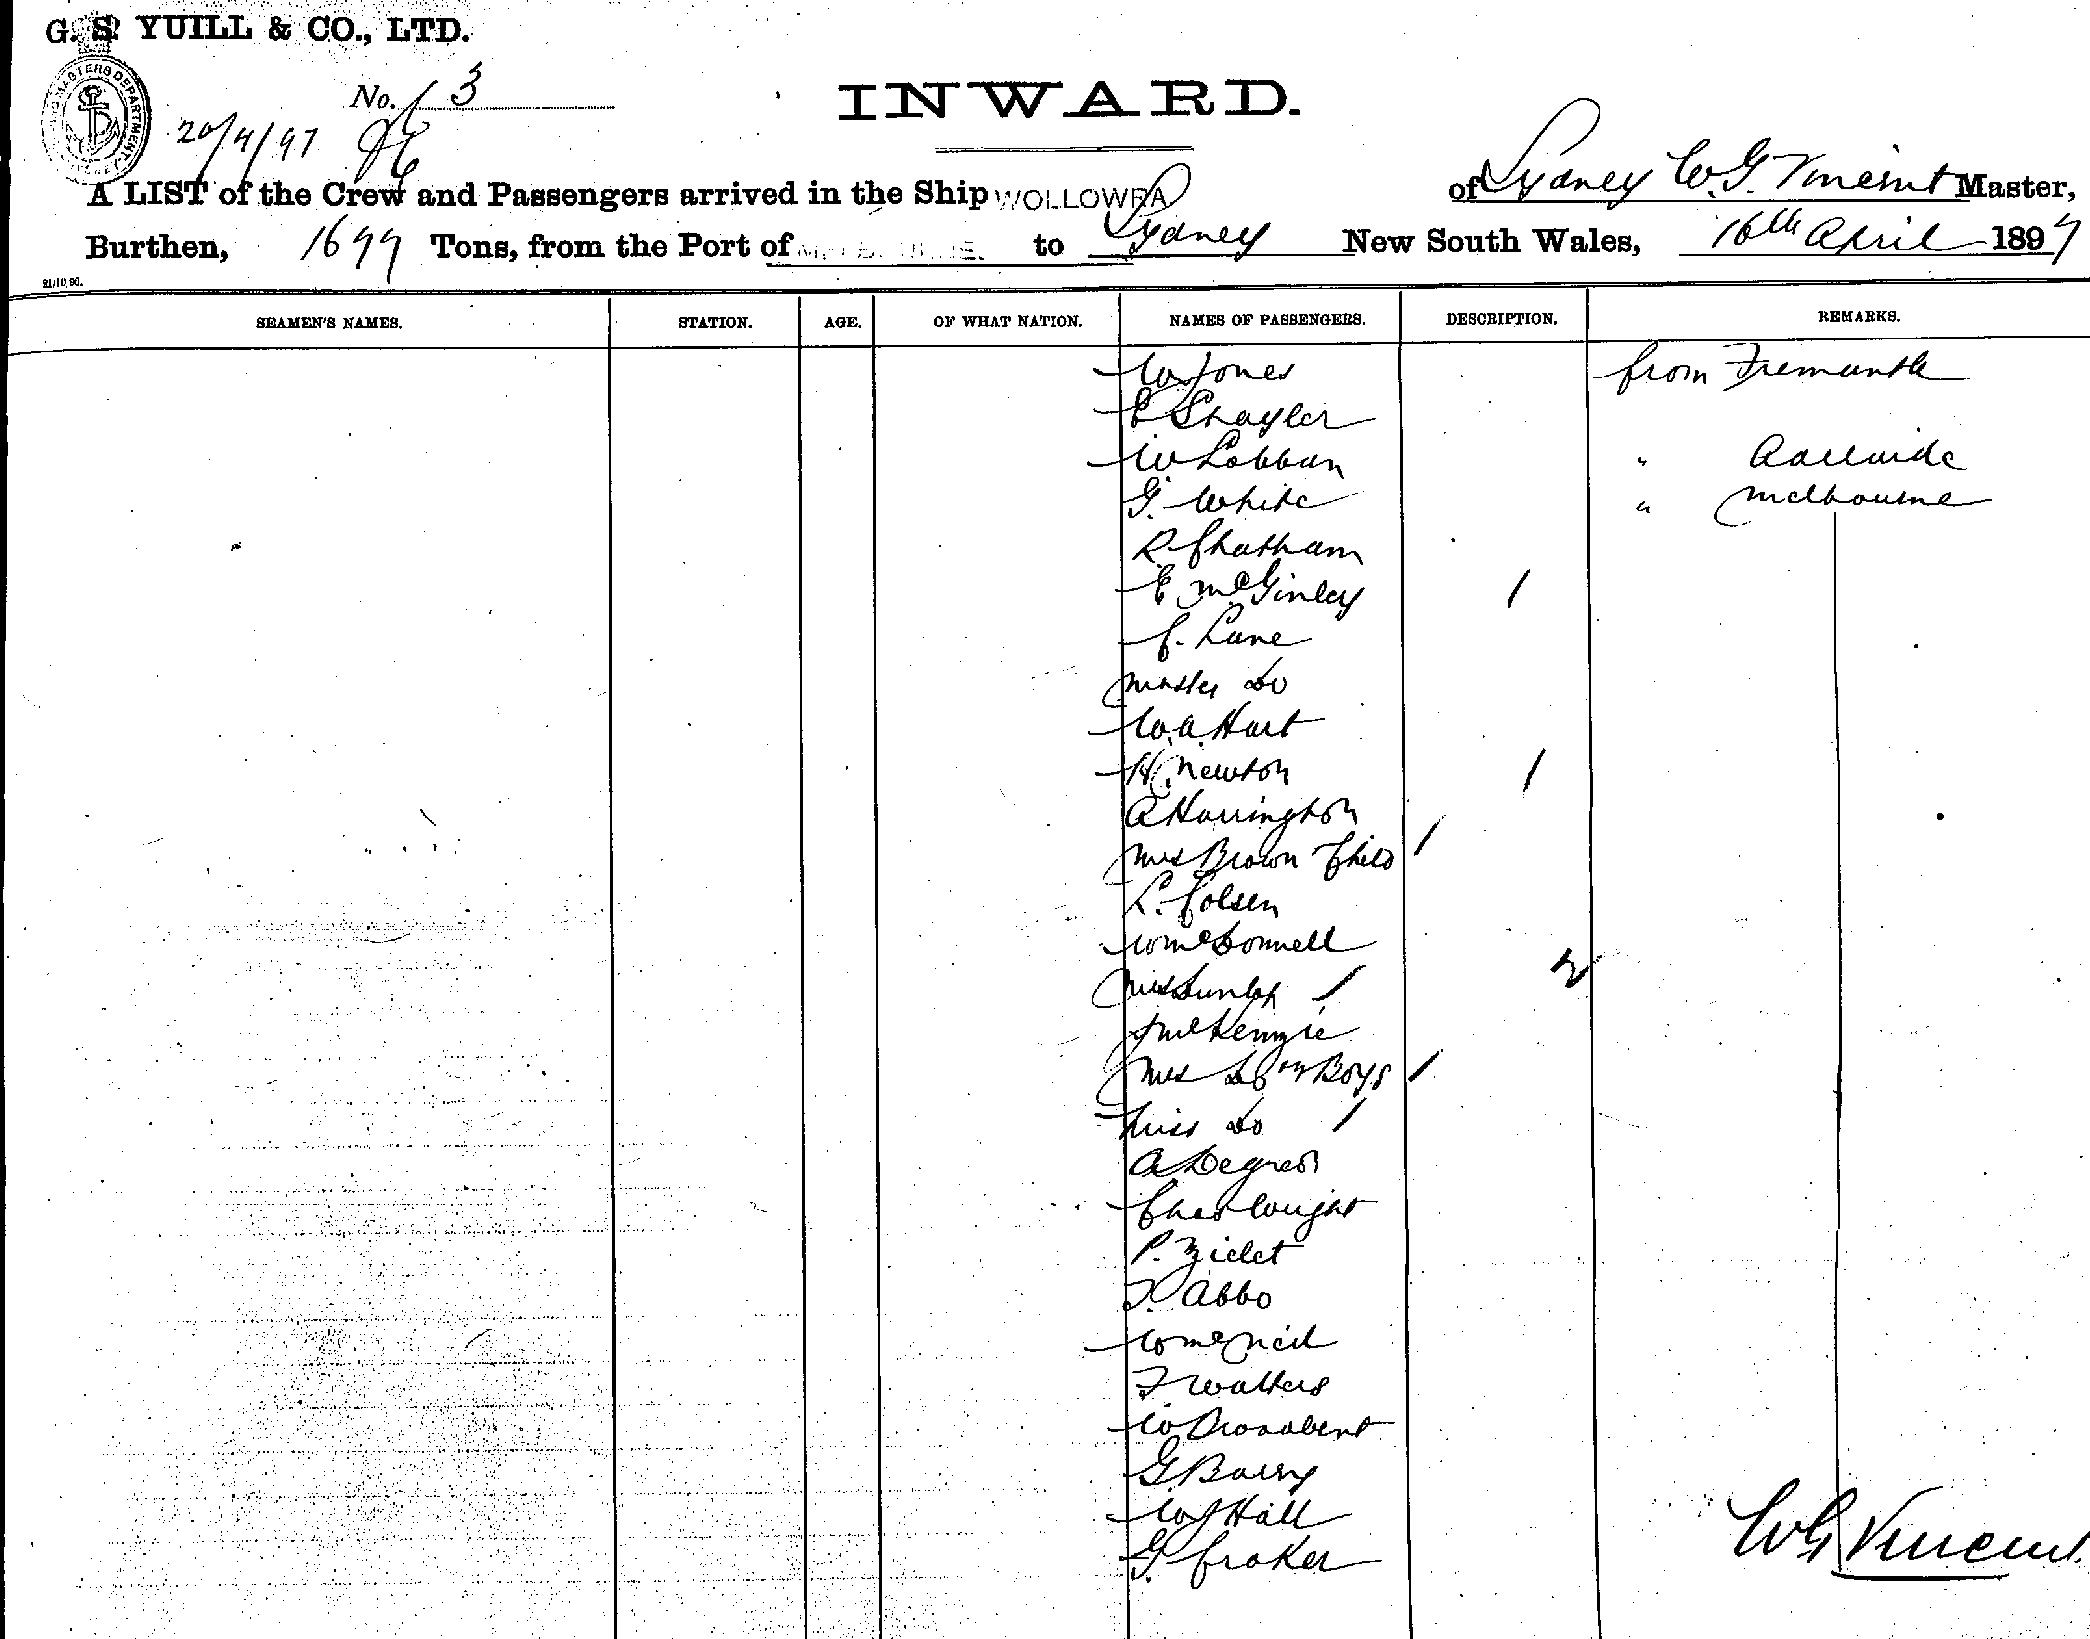 G. S. YUILL & CO., LTD.
No. 13
20/4/97
INWARD.
A LIST of the Crew and Passengers arrived in the Ship WOLLOWRA of Sydney W. G. Vincent Master,
Burthen, 1699 Tons, from the Port of MELBOURNE. to Sydney New South Wales, 16th April 1897
21/10/96.
SEAMEN'S NAMES. STATION. AGE. OF WHAT NATION. NAMES OF PASSENGERS. DESCRIPTION. REMARKS.
W Jones from Fremantle
E Shayler
W Lobban " Adelaide
G. White " Melbourne
R Chatham
E McGinley 1
C. Lane
Master Do
W. A. Hart
H. Newton 1
A Harrington
Mrs Brown Child 1
L. Colsen
W McDonnell
Mrs Dunlop 1
J McKenzie
Mrs Do Boys 1
Miss Do 1
A Degnen
Chas Wright
P. Zielet
F. Abbo
W McNeil
F Walters
W Broadbent
G Barry
W J Hall
G. Croker
W G Vincent.